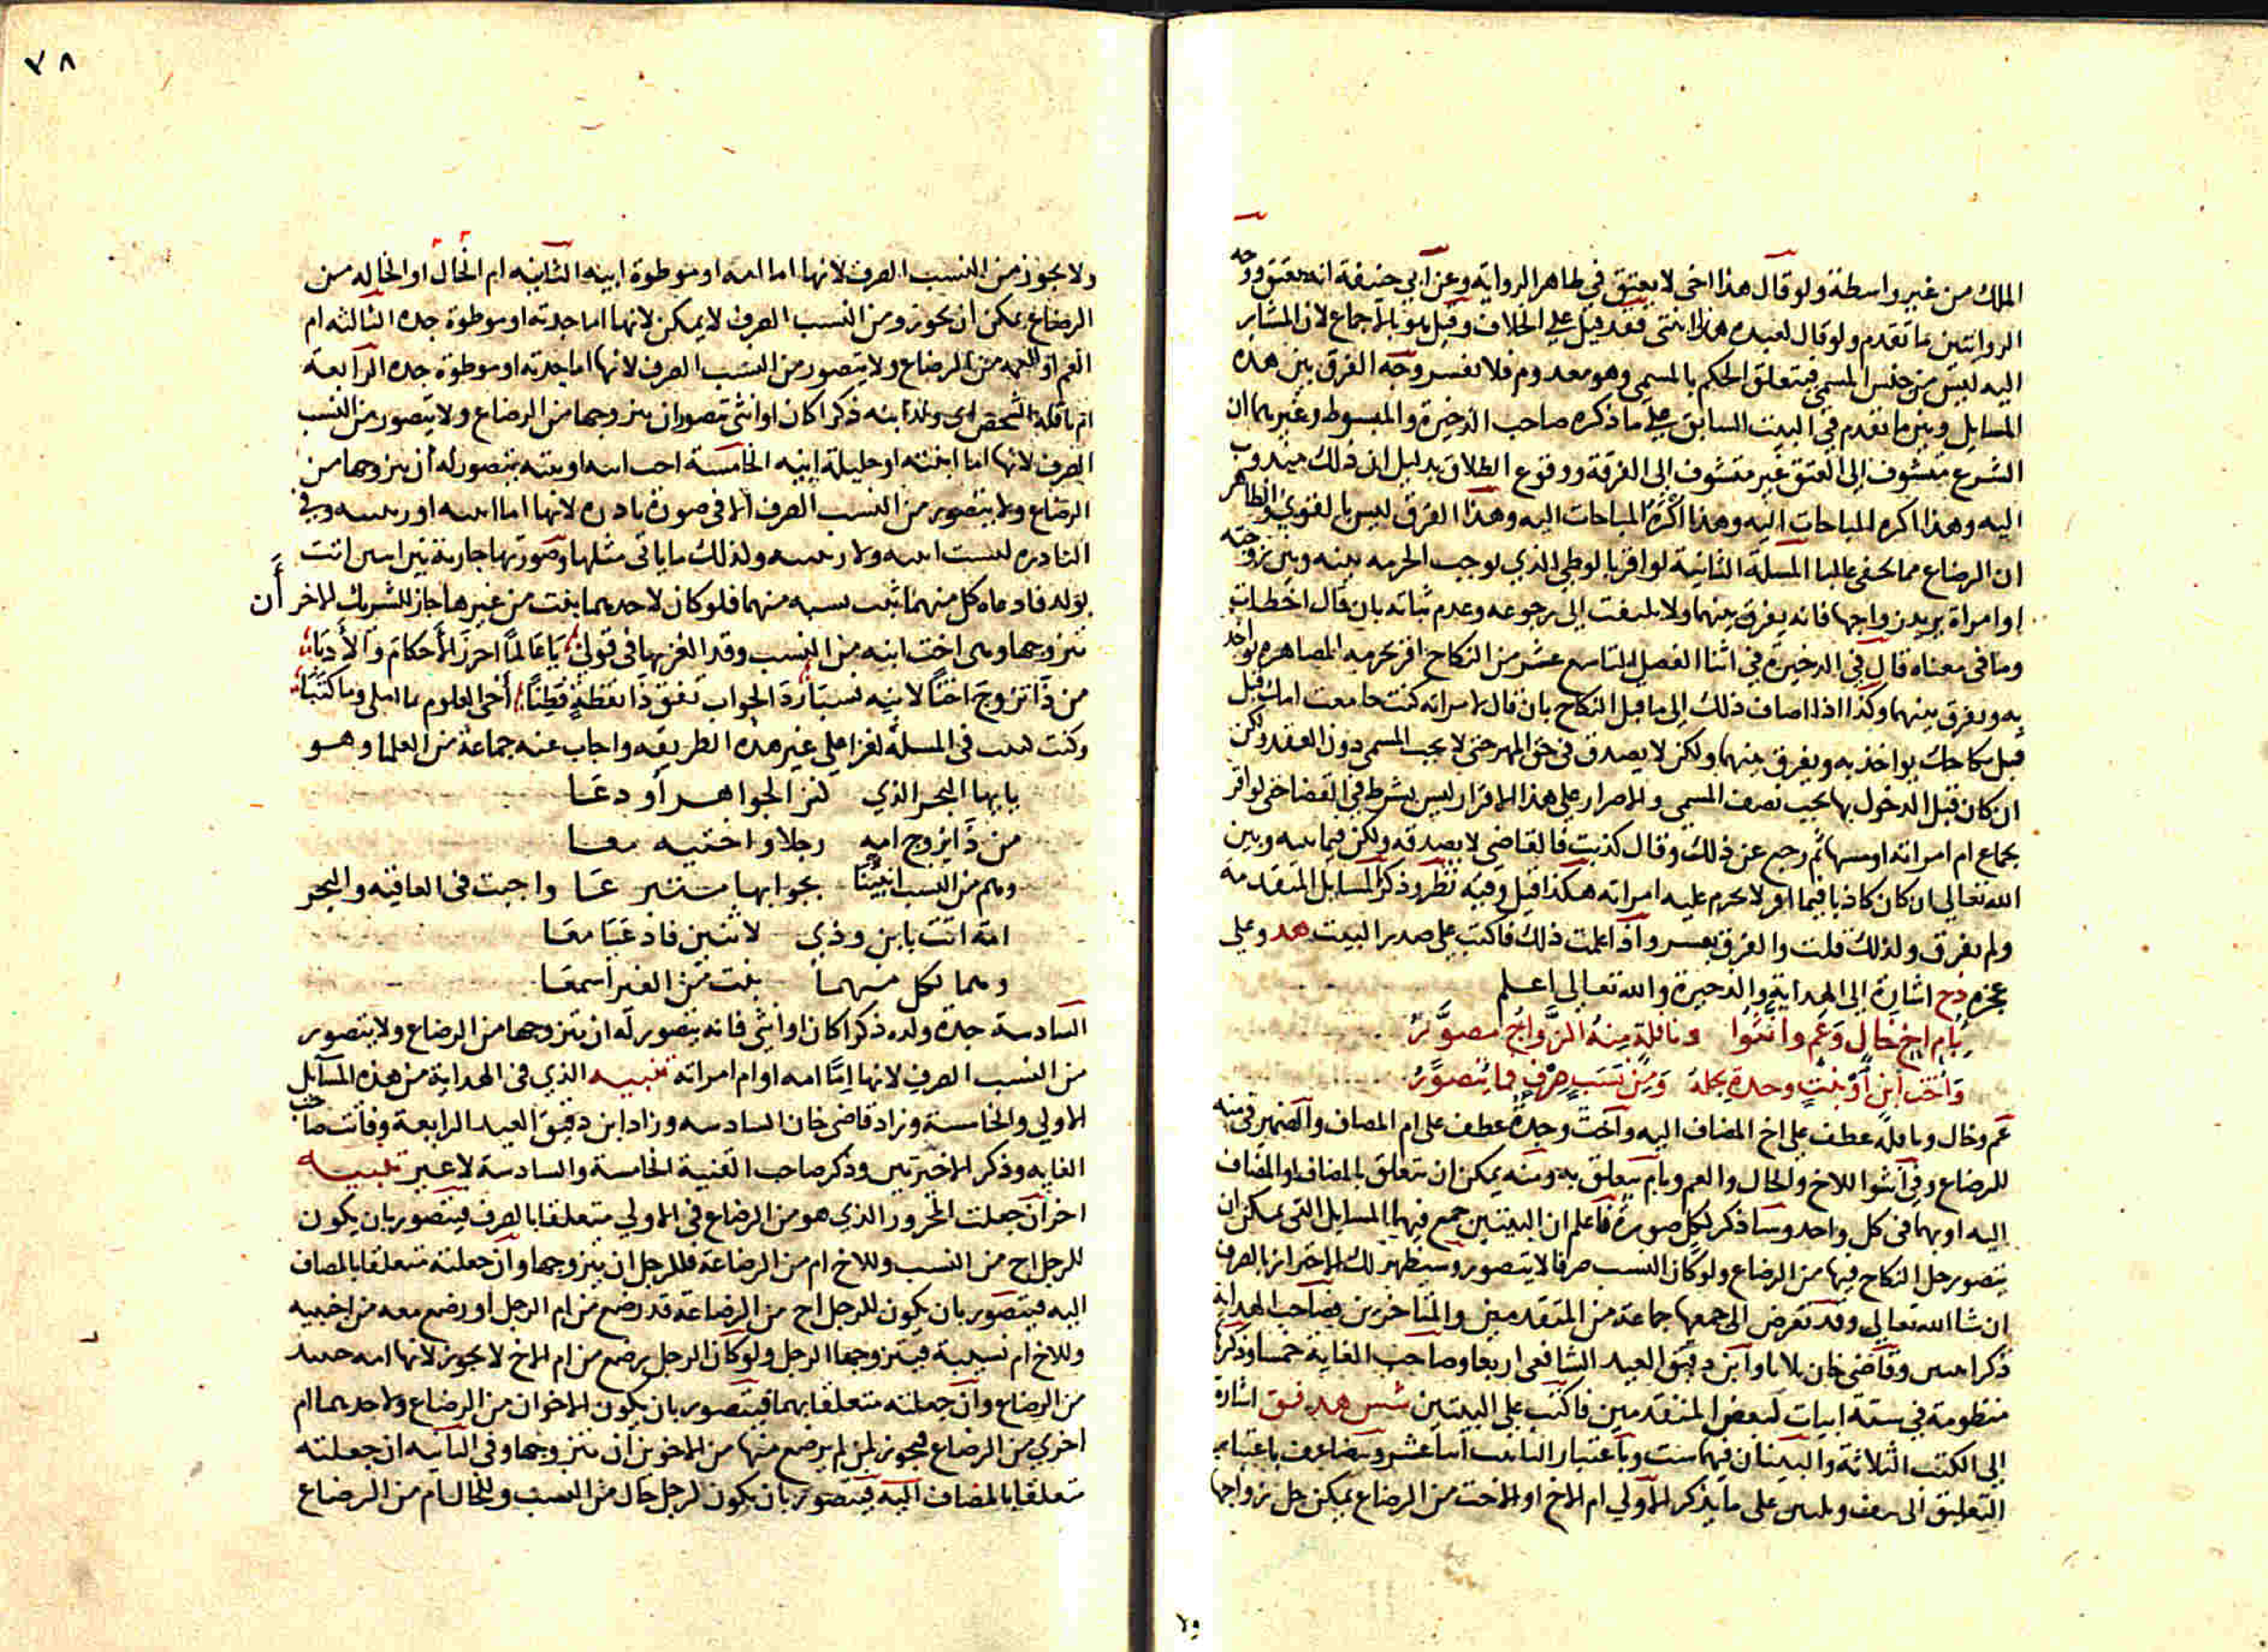 الملك من غير واسطة ولو قال هذا اخي لا يعتق في ظاهر الرواية وعن ابي حنيفة انه يعتق ووجه
الروايتين ما تقدم ولو قال لعبده هذا ابنتي فقد قيل على الخلاف وقيل هو بالاجماع لان المشار
اليه ليس من جنس المسمى فيتعلق الحكم بالمسمى وهو معدوم فلا يفسر وجه الفرق بين هذه
المسايل وبين ما تقدم في البيت السابق على ما ذكره صاحب الذخيرة والمبسوط وغيرهما ان
الشرع متشوف الى العتق غير متشوف الى الفرقة ووقوع الطلاق بدليل ان ذلك مندوب
اليه وهذا اكره المباحات اليه وهذا اكره المباحات اليه وهذا الفرق ليس بالقوي والظاهر
ان الرضاع مما يخفى غالبا المسلة الثانية لو اقر بالوطي الذي يوجب الحرمه بينه وبين زوجته
او امراة يريد زواجها فانه يفرق بينهما ولا يلتفت الى رجوعه وعدم ثباته بان قال اخطات
وما في معناه قال في الذخيرة في اثنا الفصل التاسع عشر من النكاح اقر بحرمه المصاهره يواخذ
به ويفرق بينهما وكذا اذا اضاف ذلك الى ما قبل النكاح بان قال لامراته كنت جامعت امك قبل
قبل نكاحك يواخذ به ويفرق بينهما ولكن لا يصدق في حق المهر حتى لا يجب المسمى دون العقد ولكن
ان كان قبل الدخول بها يجب نصف المسمى والاصرار على هذا الاقرار ليس بشرط في القضا حتى لو اقر
بجماع ام امراته او مسها ثم رجع عن ذلك وقال كذبت فالقاضي لا يصدقه ولكن فيما بينه وبين
الله تعالى ان كان كاذبا فيما اقر لا يحرم عليه امراته هكذا قيل وفيه نظر وذكر المسايل المتقدمة
ولم يفرق ولذلك قلت والفرق يعسر واذا علمت ذلك فاكتب على صدر البيت هد وعلى
عجزه دح اشارة الى الهداية والذخيرة والله تعالى اعلم
بام اخ خال وعم وانثوا ونافلة منه الزواج مصور
واخت ابن او بنت وجدة يحلة ومن نسب صرف فما يتصور
عم وخال ونافلة عطف على اخ المضاف اليه واخت وجدة عطف على ام المضاف والضمير في منه
للرضاع وفي انثوا للاخ والخال والعم وبام يتعلق به ومنه يمكن ان يتعلق بالمضاف او المضاف
اليه او بهما في كل واحد وساذكر لكل صورة فاعلم ان البيتين جمع فيهما المسايل التي يمكن ان
يتصور حل النكاح فيها من الرضاع ولو كان النسب صرفا لا يتصور وسيظهر لك الاحتراز بالصرف
ان شا الله تعالى وقد تعرض الى جمعها جماعة من المتقدمين والمتاخرين فصاحب الهداية
ذكر وقاضي خان ثلاثا وابن دقيق العيد الشافعي اربعا وصاحب الغاية خمسا وذكرها
منظومة في ستة ابيات لبعض المتقدمين فاكتب على البيتين شس هد فق اشارة
الى الكتب الثلاثة والبيتان فيهما ست وباعتبار التانيث اثنا عشر وتتضاعف باعتبار
التعليق الى على ما يذكر الاولى ام الاخ او الاخت من الرضاع يمكن حل زواجها
٧٨
ولا يجوز من النسب الصرف لانها اما امه او موطوة ابيه الثانية ام الخال او الخاله من
الرضاع يمكن ان يجوز ومن النسب الصرف لا يمكن لانها اما جدته او موطوة جده الثالثه ام
العم او العمه من الرضاع ولا يتصور من النسب الصرف لانها اما جدته او موطوة جده الرابعة
ام نافلة الشخص اي ولد ابنه ذكرا كان او انثى تتصور ان يتزوجها من الرضاع ولا يتصور من النسب
الصرف لانها اما ابنته او حليلة ابنه الخامسة اخت ابنه او بنته يتصور له ان يتزوجها من
الرضاع ولا يتصور من النسب الصرف الا في صورة نادره لانها اما ابنته او ربيبته وفي
النادره ليست ابنته ولا ربيبته ولذلك ما ياتي مثلها وصورتها جارية بين اثنين اتت
بولد فادعاه كل منهما ثبت نسبه منهما فلو كان لاحدهما بنت من غيرها جاز للشريك الاخر ان
يتزوجها وهي اخت ابنه من النسب وقد الغز بها في قولي يا عالما احرز الاحكام والادبا
من ذا تزوج اختا لابنه نسبا رد الجواب تفق ذا يقظة فطنا احى العلوم بما املى وما كتبا
وكنت نظمت في المسلة لغزا على غير هذه الطريقه واجاب عنه جماعة من العلما وهو
يا ايها البحر الذي كنز الجواهر أودعا
من ذا يزوج امه رجلا واختيه معا
وهم من النسب بجوابها عنا واجبت في العافيه والبحر
امة اتت بابن وذي لاثنين فادعيا معا
وهما لكل منهما بنت من الغير اسمعا
السادسة جدة ولده ذكرا كان او انثى فانه يتصور له ان يتزوجها من الرضاع ولا يتصور
من النسب الصرف لانها اما امه او ام امراته تنبيه الذي في الهداية من هذه المسايل
الاولى والخامسة وزاد قاضي خان السادسه وزاد ابن دقيق العيد الرابعة وفاتت صاحب
الغايه وذكر الاخيرتين وذكر صاحب القنية الخامسة والسادسة لا غير تنبيه
اخر ان جعلت المجرور الذي هو من الرضاع في الاولى متعلقا بالصرف فيتصور بان يكون
للرجل اخ من النسب وللاخ ام من الرضاعة فللرجل ان يتزوجها وان جعلته متعلقا بالمضاف
اليه فيتصور بان يكون للرجل اخ من الرضاعة قد رضع من ام الرجل او رضع معه من اجنبيه
وللاخ ام نسبية فيتزوجها الرجل ولو كان الرجل يرضع من ام الاخ لا يجوز لانها امه حينئذ
من الرضاع وان جعلته متعلقا بهما فيتصور بان يكون الاخوان من الرضاع ولاحدهما ام
اخرى من الرضاع فيجوز لمن لم يرضع منها من الاخوين ان يتزوجها وفي الثانيه ان جعلته
متعلقا بالمضاف اليه فيتصور بان يكون لرجل خال من النسب وللخال ام من الرضاع